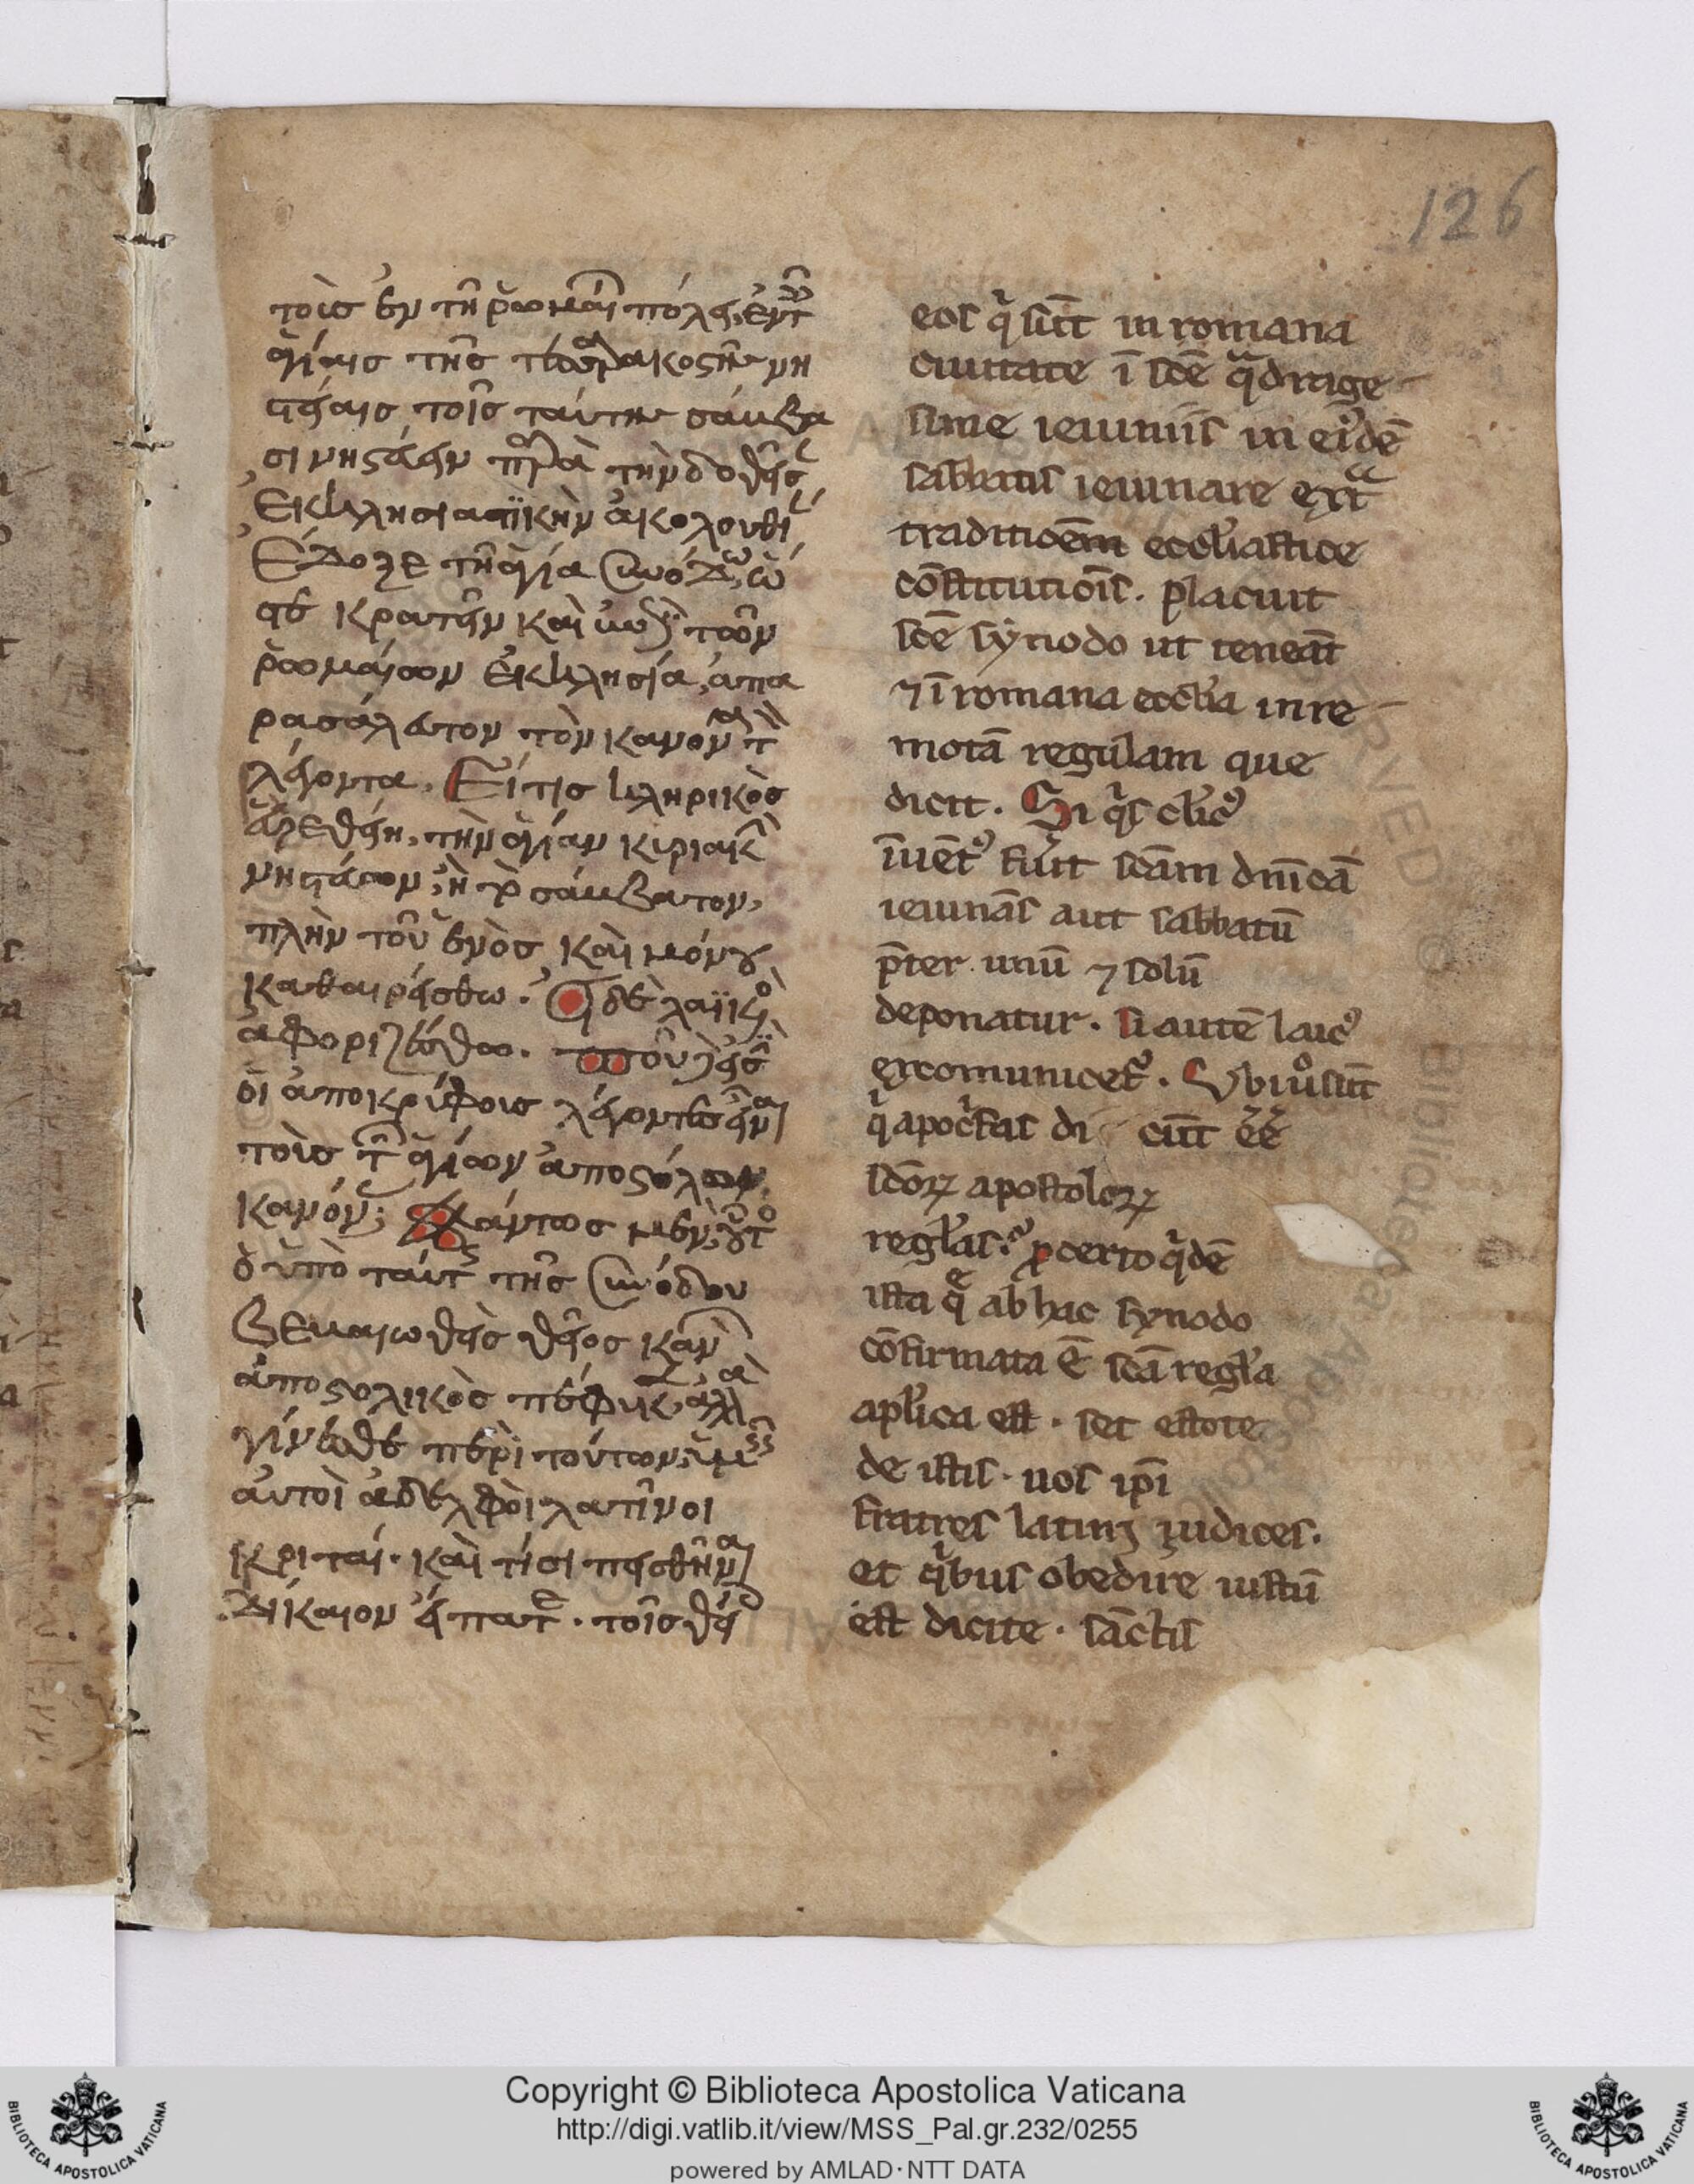 126
τοὺς ἐν τῇ ῥωμαί πόλει, ἐν τ
ἁγίαις τῆς τεσσαρακοστῆς νη
στείαις τοῖς ταύτης σάμβα
σι νηστεύειν παρὰ τὴν δοθεῖς
ἐκκλησιαστικὴν ἀκολουθί
Ἔδοξε τῇ ἁγία συνόδω, ὥ
στε κρατεῖν καὶ τῶν
ῥωμαίων ἐκκλησία, ἀπα
ρασάλευτον τὸν κανόνα τὸν
λέγοντα. Εἴ τις κληρικὸς
εὑρεθείη, τὴν ἁγίαν κυριακὴν
νηστεύων, ἢ τὸ σάμβατον,
πλὴν τοῦ ἑνὸς καὶ μόνου
καθαιρείσθω. Ὁ δὲ λαϊκὸς
ἀφοριζέσθω. ποῦ εἰσὶν
οἱ ἀποκρύφους λέγοντες εἶναι
τοὺς τῶν ἁγίων ἀποστόλων
κανόν; πάντως μὲν οὗτος
ὁ ὑπὸ ταύτης τῆς συνόδου
βεβαιωθεὶς θεῖος κανὼν
ἀποστολικὸς πέφυκεν, ἀλλὰ
γίνεσθε περὶ τούτων, ὑμεῖς
αὐτοὶ ἀδελφοὶ λατῖνοι
κριταί. καὶ τίσι πεισθῆναι
δίκαιον εἴπατε. τοῖς θεί
eos q sūt in romana
ciuitate ī sc̄e qdrage
sime ieiuniis in eiꝰdē
sabbatis ieiunare ext
traditioēm eccl'iastice
cōstitutiōīs. placuit
sc̄e synodo ut teneāt
⁊ ī romana eccl'ia inre
motā regulam que
dicit. Si qs cl'icꝰ
īuētꝰ fu'it sc̄am dn̄icā
ieiunās aut sabbatū
p̄ter unū ⁊ solū
deponatur. si autē laicꝰ
excomunicet'. Vbi uº sūt
q apoc'fas di cūt ēē
sc̄oꝝ apostoloꝝ
regl'as. ꝓcerto qdē
ista q ab hac synodo
cōfirmata ē sc̄a regl'a
apl'ica est. set estote
de istis. uos ip̄i
fratres latini iudices.
et qbus obedire iustū
est dicite. sāctis
Copyright © Biblioteca Apostolica Vaticana
http://digi.vatlib.it/view/MSS_Pal.gr.232/0255
powered by AMLAD·NTT DATA
BIBLIOTECA APOSTOLICA VATICANA
BIBLIOTECA APOSTOLICA VATICANA